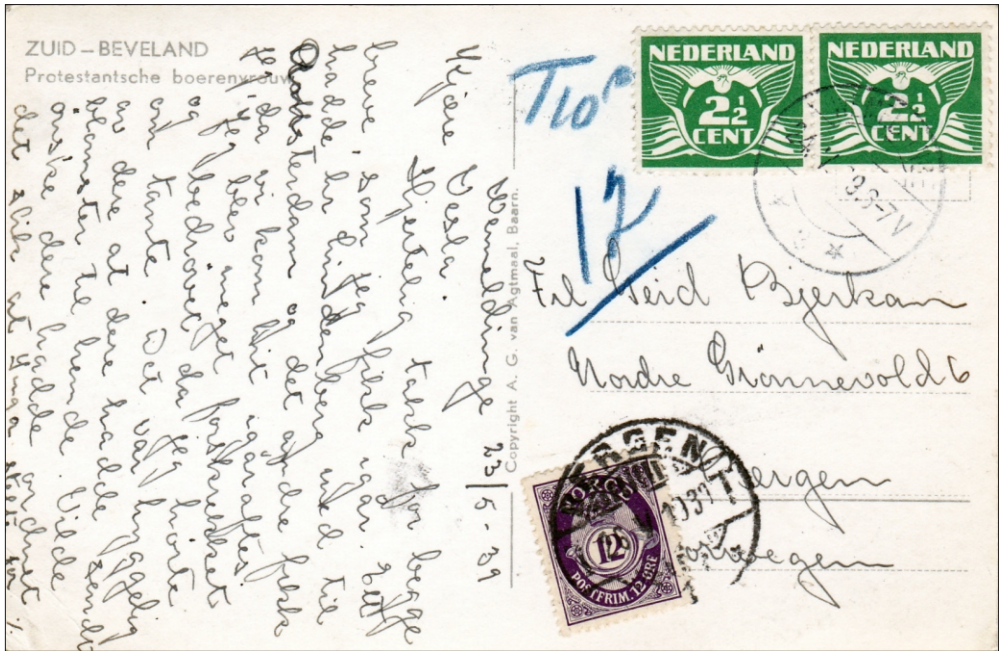 ZUID – BEVELAND
Protestantsche boerenvrouw
Wemeldinge 23/5-39
Kjære Vesla.
Hjertelig takk for
breve som jeg fikk igår. Begge
hadde hr Lindenberg med til
Amsterdam og det andre fikk
jeg da vi kom hit igåraftes.
Jeg blev meget forskrekket
og bedrøvet da jeg hørte
om tante. Det var hyggelig
av dere at dere hadde sendt
blomster til hende. Vilde
ønske dere hadde
det slik at
Copyright A. G. van Agtmaal, Baarn.
T10c
12
NEDERLAND
2½
CENT
NEDERLAND
2½
CENT
Til Reid Bjerkan
Nordre Grönnevold 6
Bergen
Norwegen
BERGEN
NORGE
12
POSTFRIM. 12 ØRE